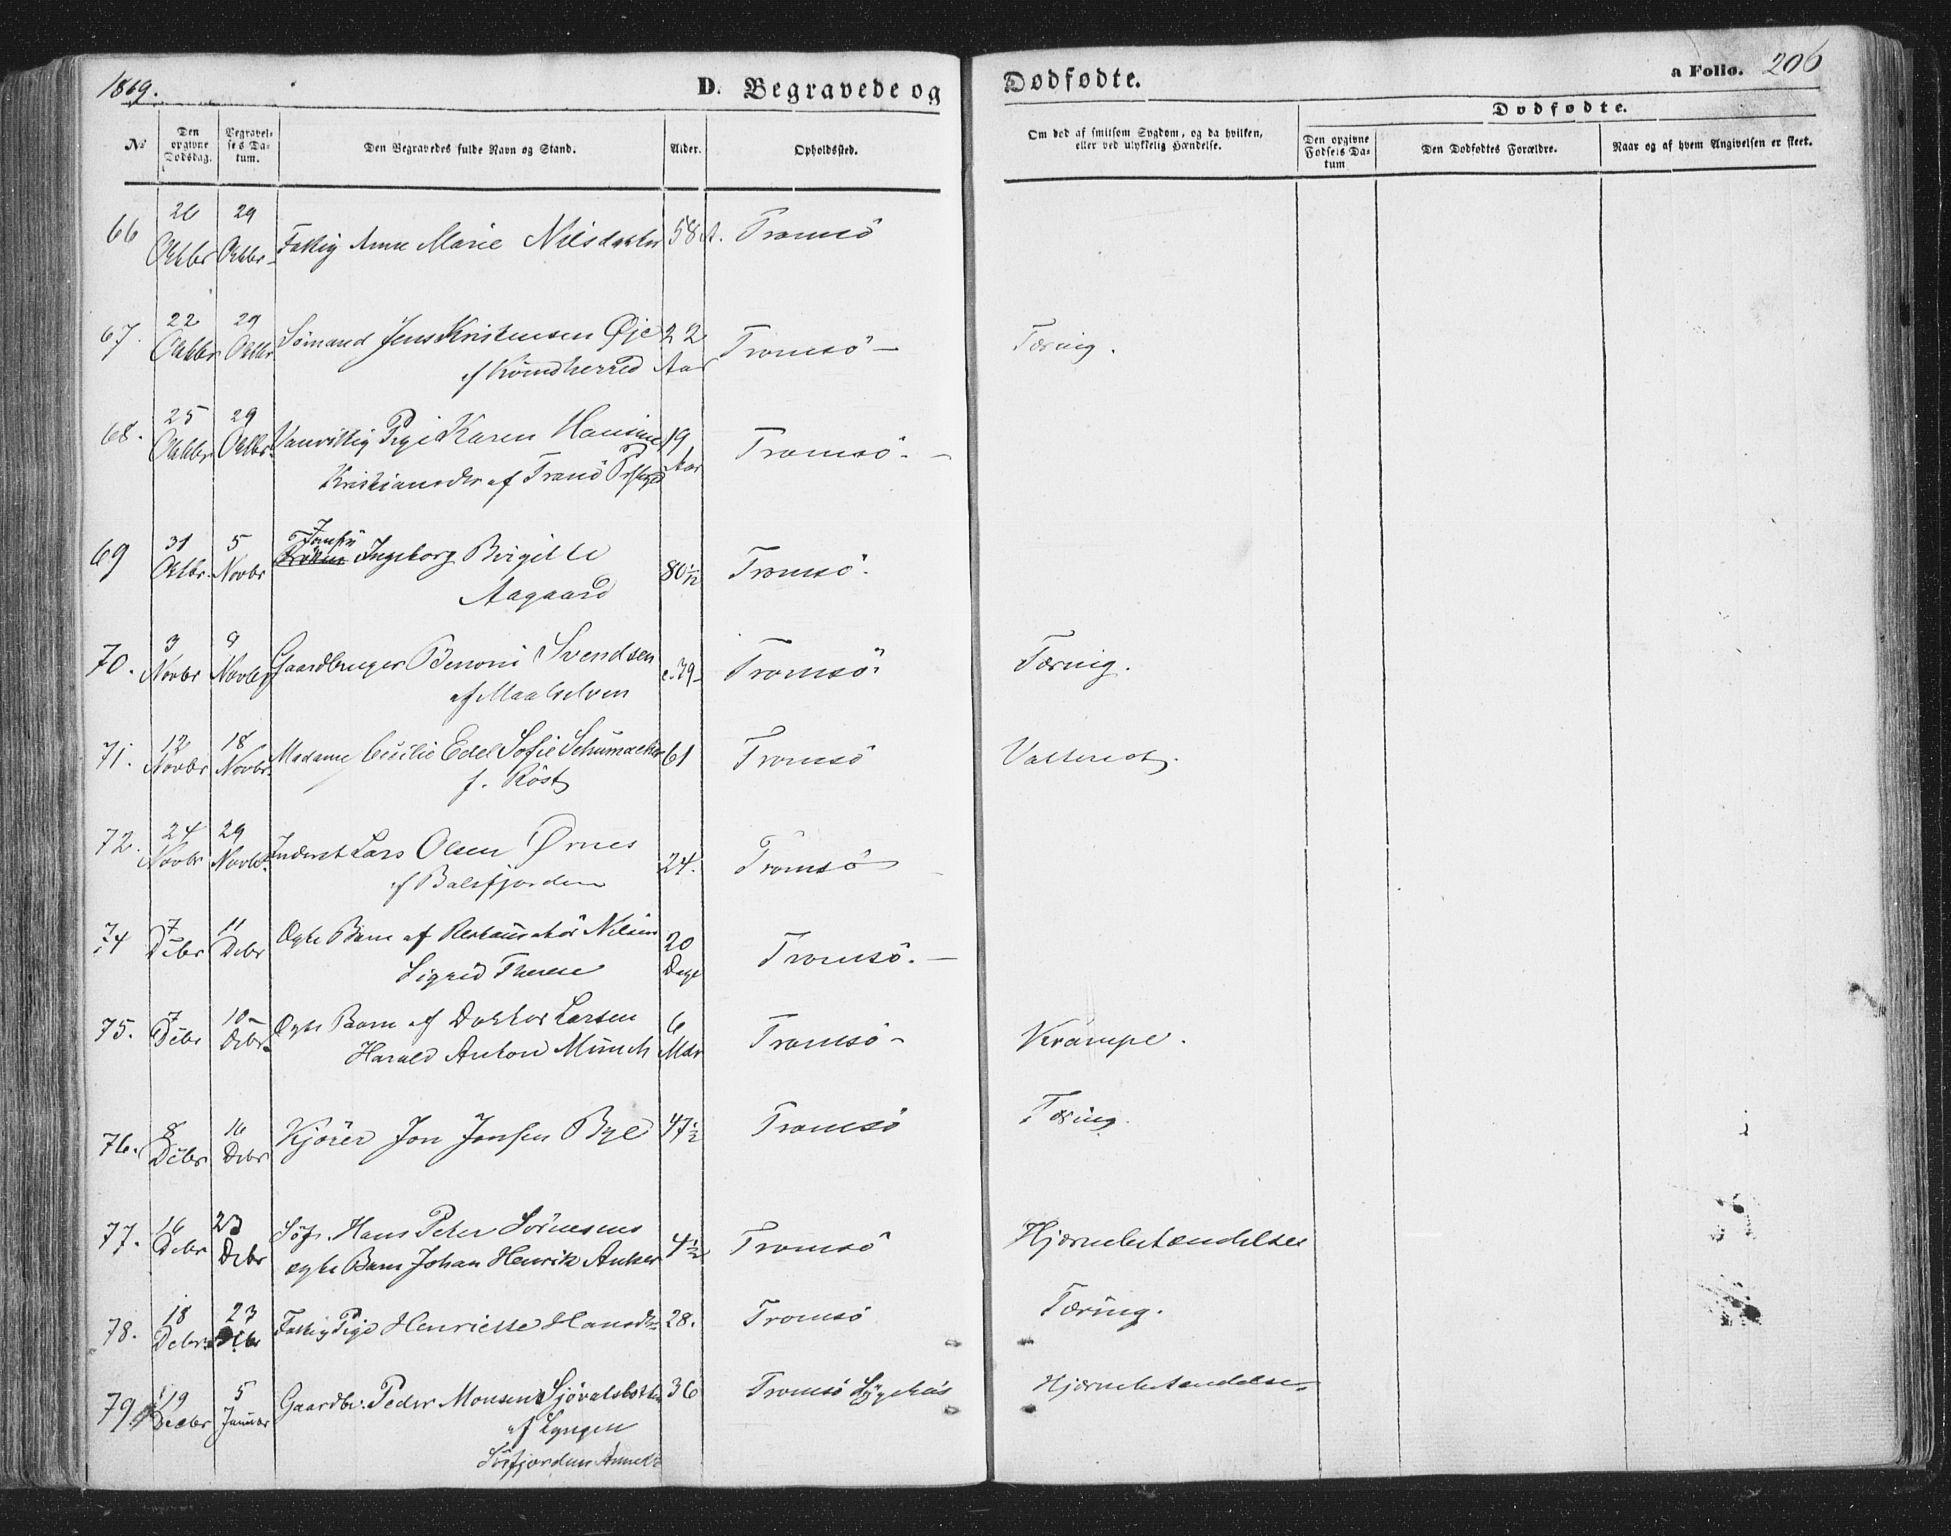 1869.
D. Begravede og
Dødfødte.
a Folio. 206
No
Den opgivne Dødsdag.
Begravelses Datum.
Den Begravedes fulde Navn og Stand.
Alder.
Opholdssted.
Om død af smitsom Sygdom, og da hvilken, eller ved ulykkelig Hændelse.
Dødfødte.
Den opgivne Fødsels Datum
Den Dødfødtes Forældre.
Naar og af hvem Angivelsen er skeet.
66 26 Octbr 29 Octbr Fattig Anne Marie Nilsdatter 58 A. Tromsö
67. 22 Octbr 29 Octbr Sømand Jens Kristensen Øje 22 Tromsö Tæring.
af Kvindherred Aar
68. 25 Octbr 29 Octbr Vanvittig Pige Karen Hansine 19 Tromsö.
Kristiansdtr af Tranö Aar
69 31 Octbr. 5 Novbr Jomfru Ingeborg Birgitte 80 1/12 Tromsö.
Aagaard
70. 3 Novbr 9 Novbr Gaardbruger Benoni Svendsen c. 39 Tromsö Tæring.
af Maalselven
71. 12 Novbr 18 Novbr. Madame Cecilie Edel Sofie Schumacher 61 Tromsö Vattersot.
f. Röst
72. 24 Novbr 29 Novbr. Inderst Lars Olsen Ørnes 24. Tromsö
af Balsfjorden
74 7 Debr 11 Debr Ægte Barn af Restauratör Nilsen 20 Dage Tromsö.
Sigrid Therese
75. 7 Debr 10 Debr. Ægte Barn af Doktor Larsen 6 Mdr Tromsö Krampe.
Harald Anton Münch
76. 8 Debr 16 Debr Kjörer Jon Jonsen Bye 47 1/2 Tromsö Tæring.
77. 16 Debr 23 Debr Söfr. Hans Peter Sörensens 4 1/2 Tromsö Hjernebetændelse
ægte Barn Johan Henrik Anker
78. 18 Debr. 23 Debr Fattig Pige Henriette Hansdtr 28. Tromsö Tæring.
79. 19 Decbr 5 Januar Gaardbr. Peder Monsen 36 Tromsö Sygehus Hjernebetændelse.
af Lyngen
Sörfjorden